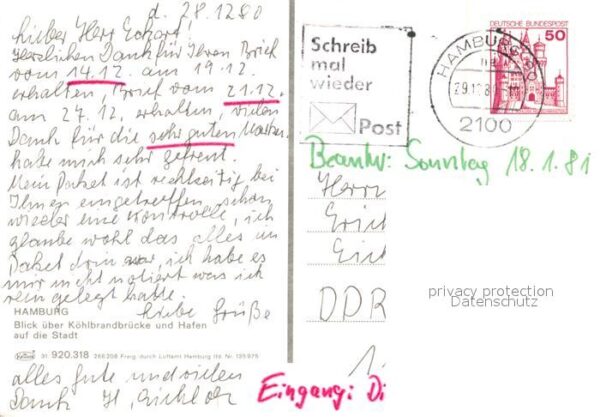 d. 28.12 80
Lieber Herr Eckard!
Herzlichen Dank für Ihren Brief
vom 14.12. am 19.12.
erhalten, Brief vom 21.12.
am 27.12. erhalten vielen
Dank für die sehr guten
habe mich sehr gefreut.
Mein Paket ist rechtzeitig bei
Ihnen eingetroffen, schon
wieder eine Kontrolle, ich
glaube wohl das alles im
Paket drin war, ich habe es
mir nicht notiert was ich
rein gelegt hatte.
Liebe Grüße
HAMBURG
Blick über Köhlbrandbrücke und Hafen
auf die Stadt
31 920.318 Freig. durch Luftamt Hamburg
alles gute und vielen
Dank H.
Schreib
mal
wieder
Post
HAMBURG
2100
DEUTSCHE BUNDESPOST
50
Beantw: Sonntag 18.1.81
Herrn
Erich
DDR
privacy protection
Datenschutz
Eingang: Di